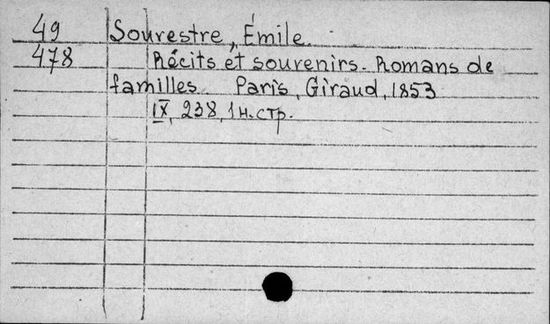 49 Souvestre, Émile.
478 Récits et souvenirs. Romans de
familles Paris, Giraud, 1853
IX, 238, 1 н. стр.